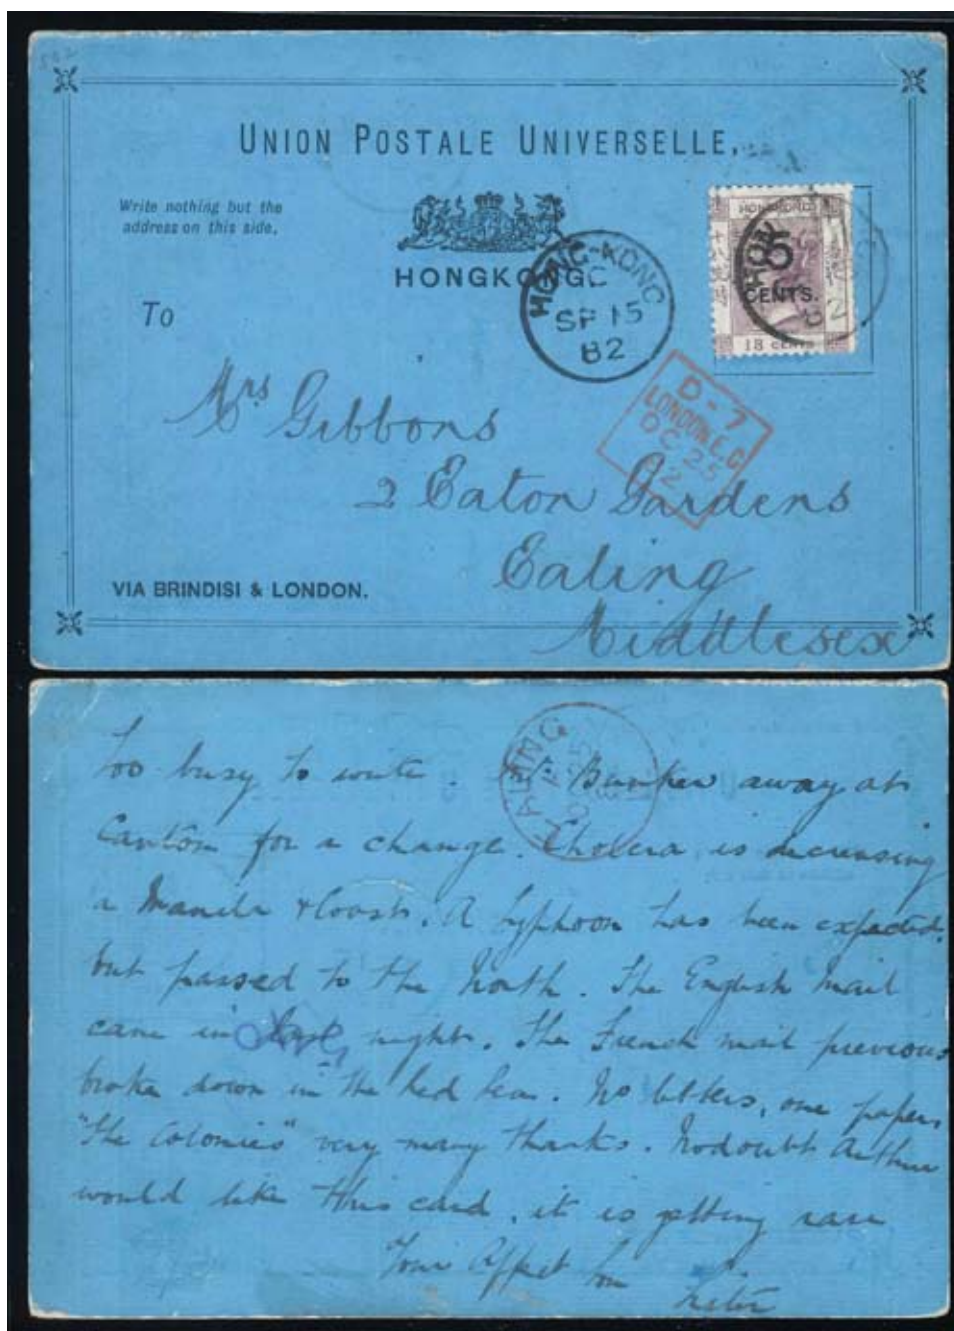 UNION POSTALE UNIVERSELLE.
Write nothing but the
address on this side.
HONGKONG
HONG-KONG
C
SP 15
82
HONGKONG
5
CENTS.
18 CENTS
82
To
D-7
LONDON E.C
DC 25
2
Mrs Gibbons
2 Eaton Gardens
Ealing
Middlesex
VIA BRINDISI & LONDON.
EALING
Too busy to write. Bunker away at
Canton for a change. Cholera is decreasing
a Manila & Coast. A typhoon has been expected,
but passed to the North. The English Mail
came in last night. The French mail previous
broke down in the Red Sea. No letters, one papers
"The Colonies" very many thanks. Nodoubt Arthur
would like this card, it is getting rare
Your Affect Son